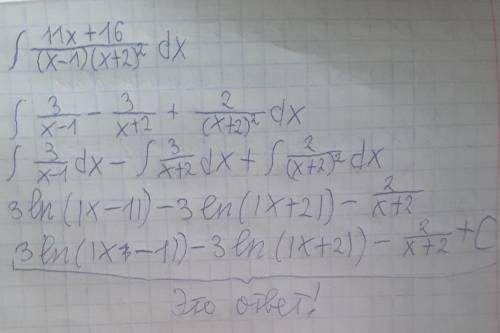 ∫ (11x+16)/((x-1)(x+2)²) dx
∫ 3/(x-1) - 3/(x+2) + 2/(x+2)² dx
∫ 3/(x-1) dx - ∫ 3/(x+2) dx + ∫ 2/(x+2)² dx
3ln(|x-1|) - 3ln(|x+2|) - 2/(x+2)
3ln(|x-1|) - 3ln(|x+2|) - 2/(x+2) + C
Это ответ!